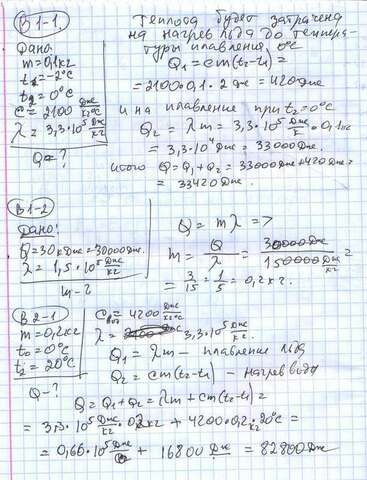 В 1-1
Дано:
m=0,1кг
t₁=-2°С
t₂=0°С
С=2100 Дж/кг°С
λ=3,3·10⁵ Дж/кг
Q-?
Теплота будет затрачена
на нагрев льда до темпера-
туры плавления 0°С
Q₁=cm(t₂-t₁)=
=2100·0,1·2 Дж=420Дж
и на плавление при t₂=0°С
Q₂=λm=3,3·10⁵ Дж/к·0,1кг
=3,3·10⁴Дж=33000Дж
итого Q=Q₁+Q₂=33000Дж+420Дж=
=33420Дж.
В 1-2
Дано:
Q=30кДж=30000Дж.
λ=1,5·10⁵ Дж/кг
m-?
Q=mλ=>
m=Q/λ=30000Дж/150000Дж/кг=
=3/15=1/5=0,2кг.
В 2-1
m=0,2кг
t₀=0°С
t₂=20°С
Q-?
Свод=4200 Дж/кг°С
λ=3,3·10⁵Дж/кг.
Q₁=λm- плавление льда
Q₂=cm(t₂-t₁)-нагрев воды
Q=Q₁+Q₂=λm+cm(t₂-t₁)=
=3,3·10⁵ Дж/кг·0,2кг+4200·0,2·кг·20°С=
=0,66·10⁵Дж+16800Дж=82800Дж